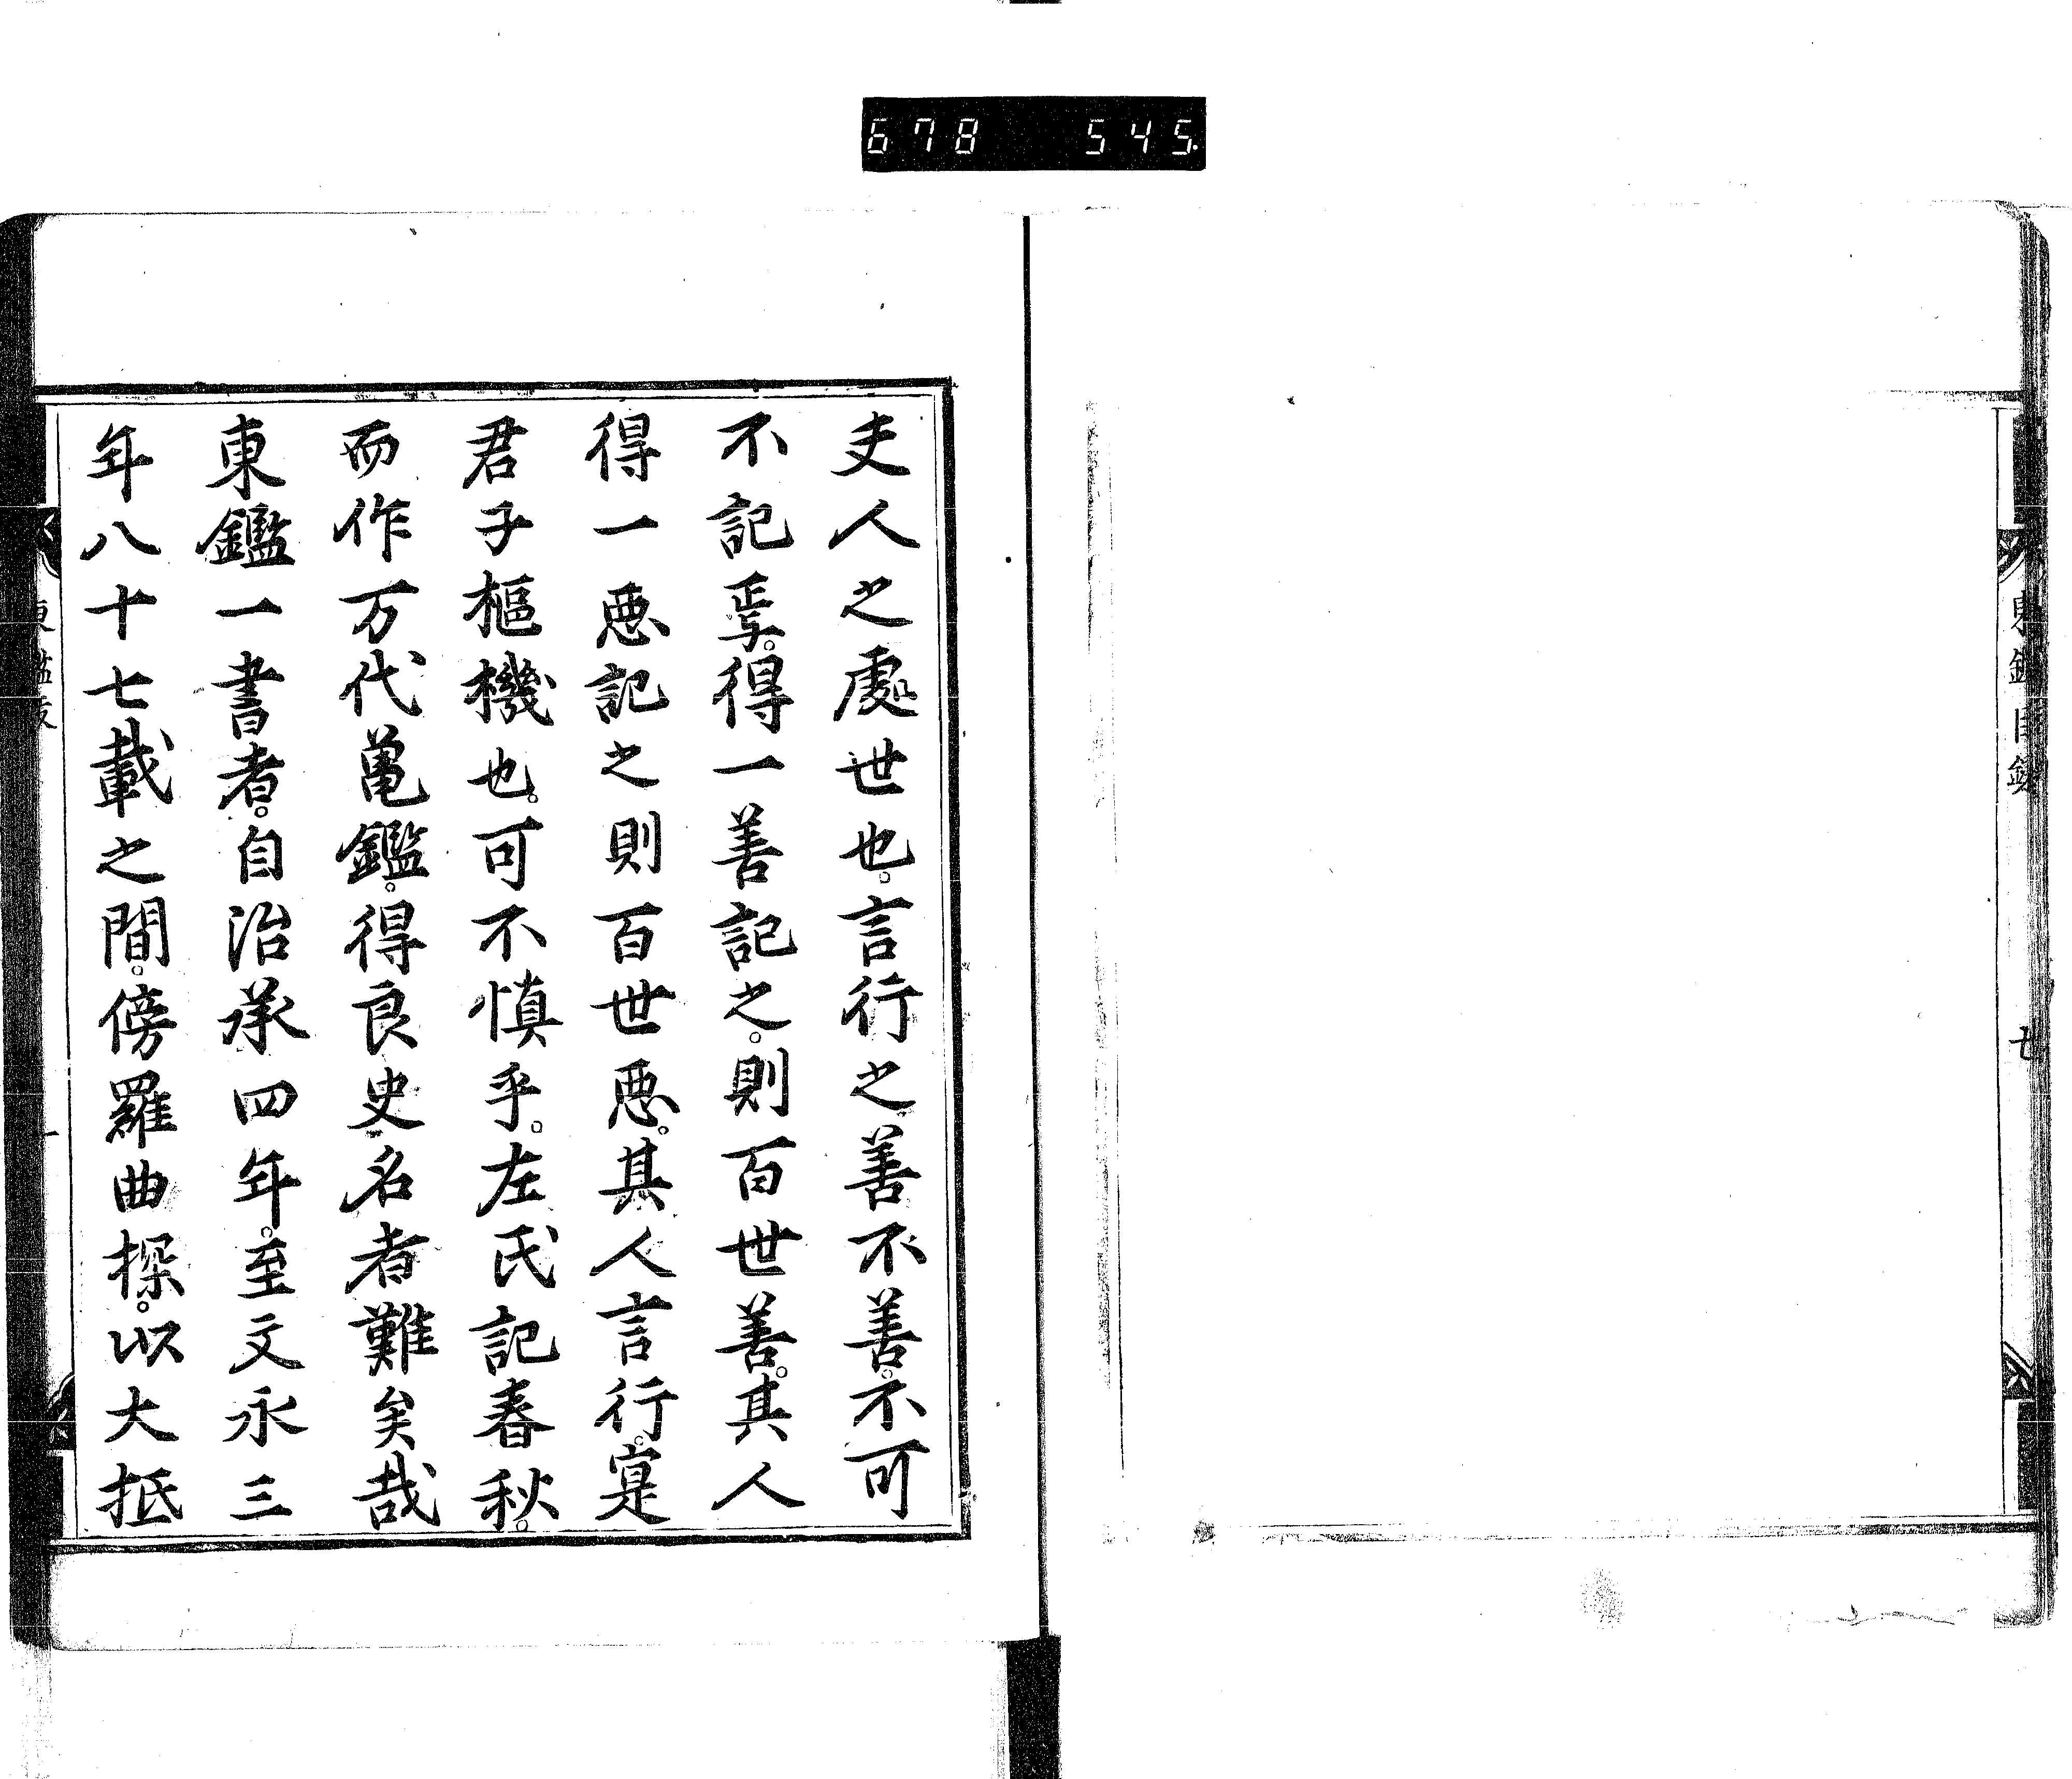 678 545.
東鑑目録
七
夫人之處世也。言行之善不善。不可
不記焉。得一善記之。則百世善。其人
得一惡記之則百世惡。其人言行。寔
君子樞機也。可不慎乎。左氏記春秋。
而作万代亀鑑。得良史名者難矣哉
東鑑一書者。自治承四年。至文永三
年八十七載之間。傍羅曲探。以大抵